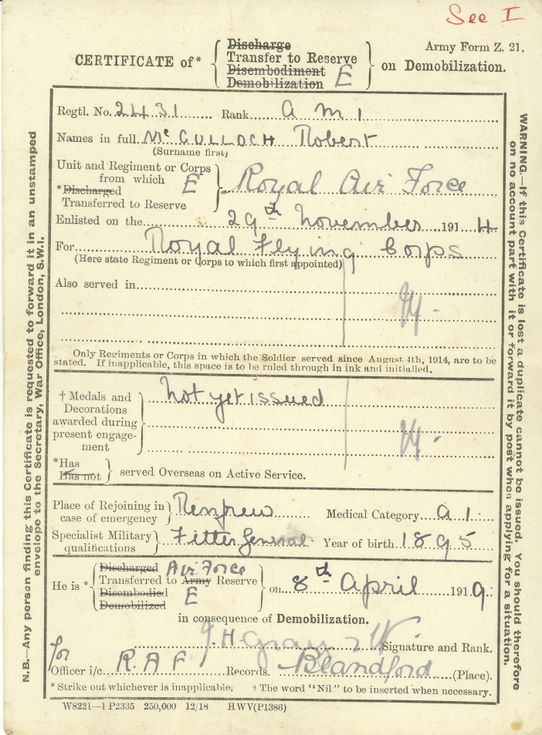 See I
Army Form Z. 21.
CERTIFICATE of* { Discharge
Transfer to Reserve
Disembodiment E
Demobilization } on Demobilization.
Regtl. No. 2431 Rank A M 1
Names in full McCULLOCH Robert
(Surname first)
Unit and Regiment or Corps
from which E } Royal Air Force
*Discharged
Transferred to Reserve
Enlisted on the 29th November 1914
For Royal Flying Corps
(Here state Regiment or Corps to which first appointed)
Also served in
Only Regiments or Corps in which the Soldier served since August 4th, 1914, are to be
stated. If inapplicable, this space is to be ruled through in ink and initialled.
† Medals and Not yet issued
Decorations
awarded during
present engage-
ment
*Has
Has not } served Overseas on Active Service.
Place of Rejoining in } Renfrew Medical Category A 1.
case of emergency
Specialist Military } Fitter General Year of birth 1895
qualifications
He is * { Discharged Air Force
Transferred to Army Reserve } on 8th April 1919.
Disembodied E
Demobilized
in consequence of Demobilization.
Signature and Rank.
for
Officer i/c R.A.F Records. Blandford (Place).
* Strike out whichever is inapplicable; † The word "Nil" to be inserted when necessary.
W8221—1 P2335 250,000 12/18 HWV(P1386)
N.B.—Any person finding this Certificate is requested to forward it in an unstamped
envelope to the Secretary, War Office, London, S.W.1.
WARNING.—If this Certificate is lost a duplicate cannot be issued. You should therefore
on no account part with it or forward it by post when applying for a situation.